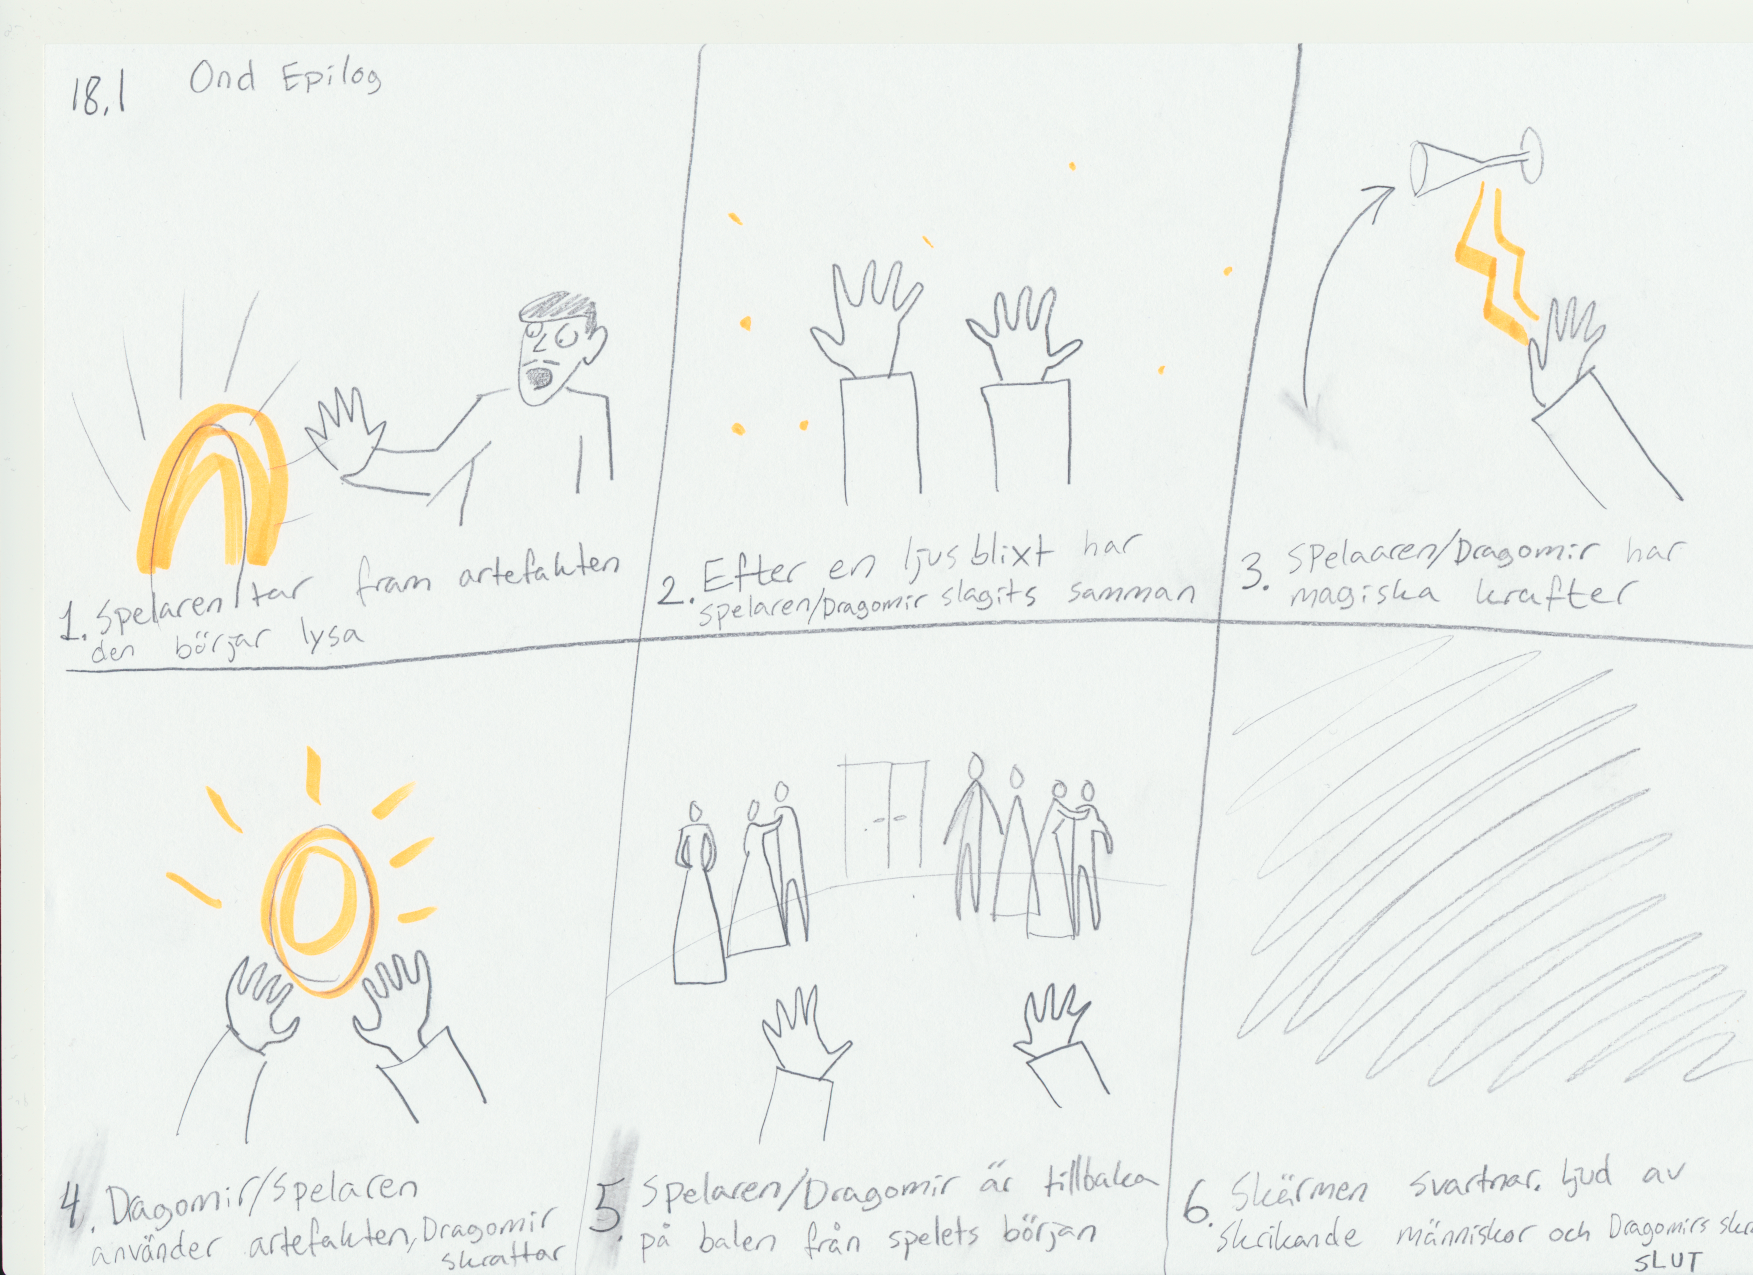 18.1 Ond Epilog
1. Spelaren tar fram artefakten
den börjar lysa
2. Efter en ljusblixt har
spelaren/Dragomir slagits samman
3. Spelaaren/Dragomir har
magiska krafter
4. Dragomir/Spelaren
använder artefakten, Dragomir
skrattar
5. Spelaren/Dragomir är tillbaka
på balen från spelets början
6. Skärmen svartnar. Ljud av
skrikande människor och Dragomirs
SLUT